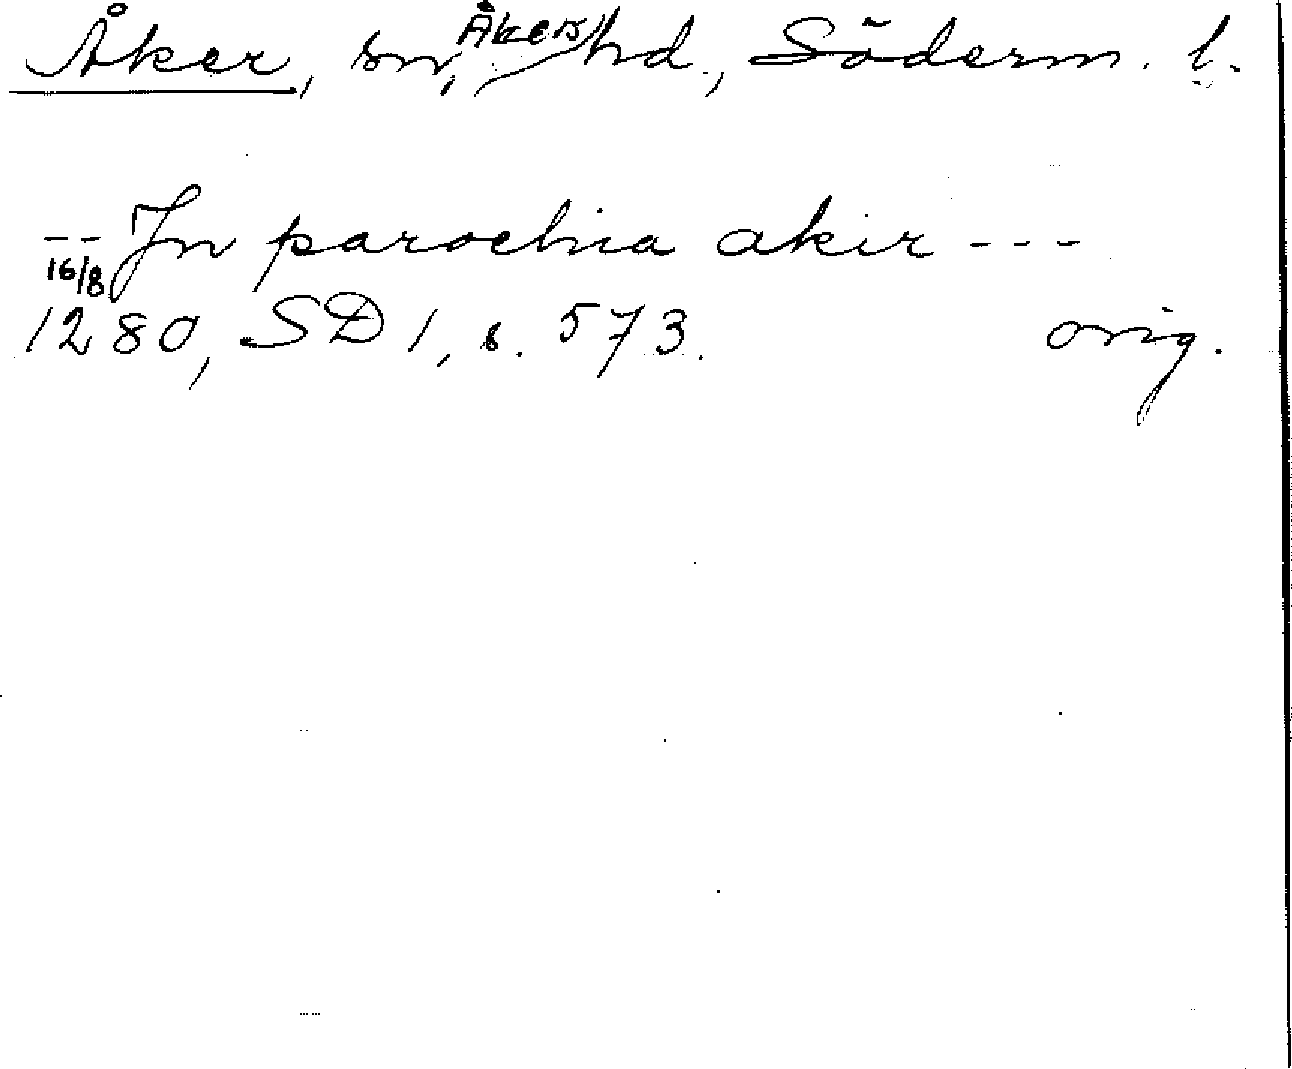 Åker, sn, Åkers hd., Söderm. l.
-- In parochia akir ---
16/8 1280, SD 1, s. 573. orig.